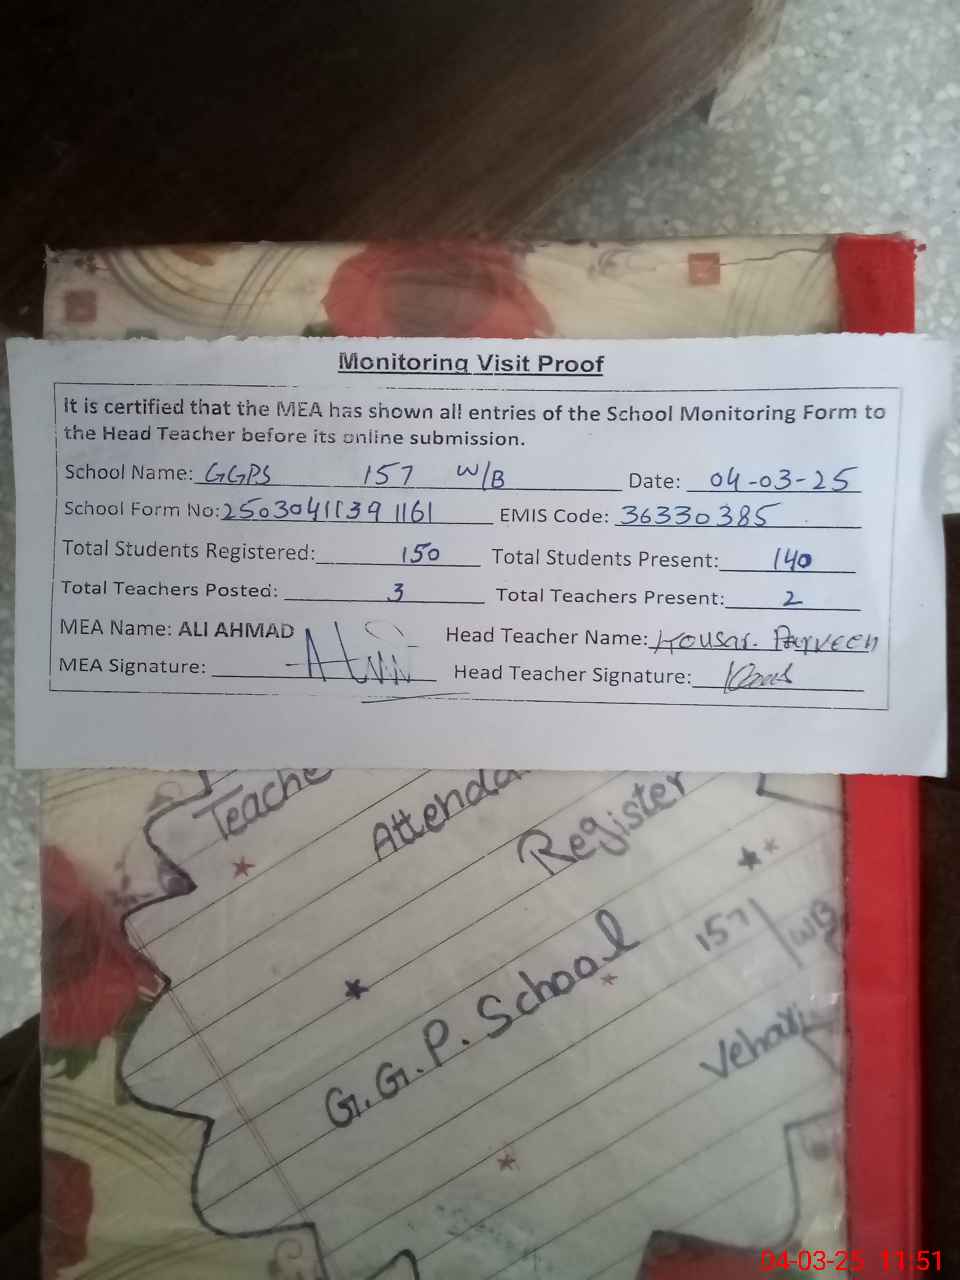 Monitoring Visit Proof
It is certified that the MEA has shown all entries of the School Monitoring Form to
the Head Teacher before its online submission.
School Name: GGPS 157 W/B Date: 04-03-25
School Form No: 2503041139 1161 EMIS Code: 36330385
Total Students Registered: 150 Total Students Present: 140
Total Teachers Posted: 3 Total Teachers Present: 2
MEA Name: ALI AHMAD Head Teacher Name: Kousar. Parveen
MEA Signature: Head Teacher Signature:
Teache
Attenda
Register
G.G.P. School 157/WB
Vehari
04-03-25 11:51